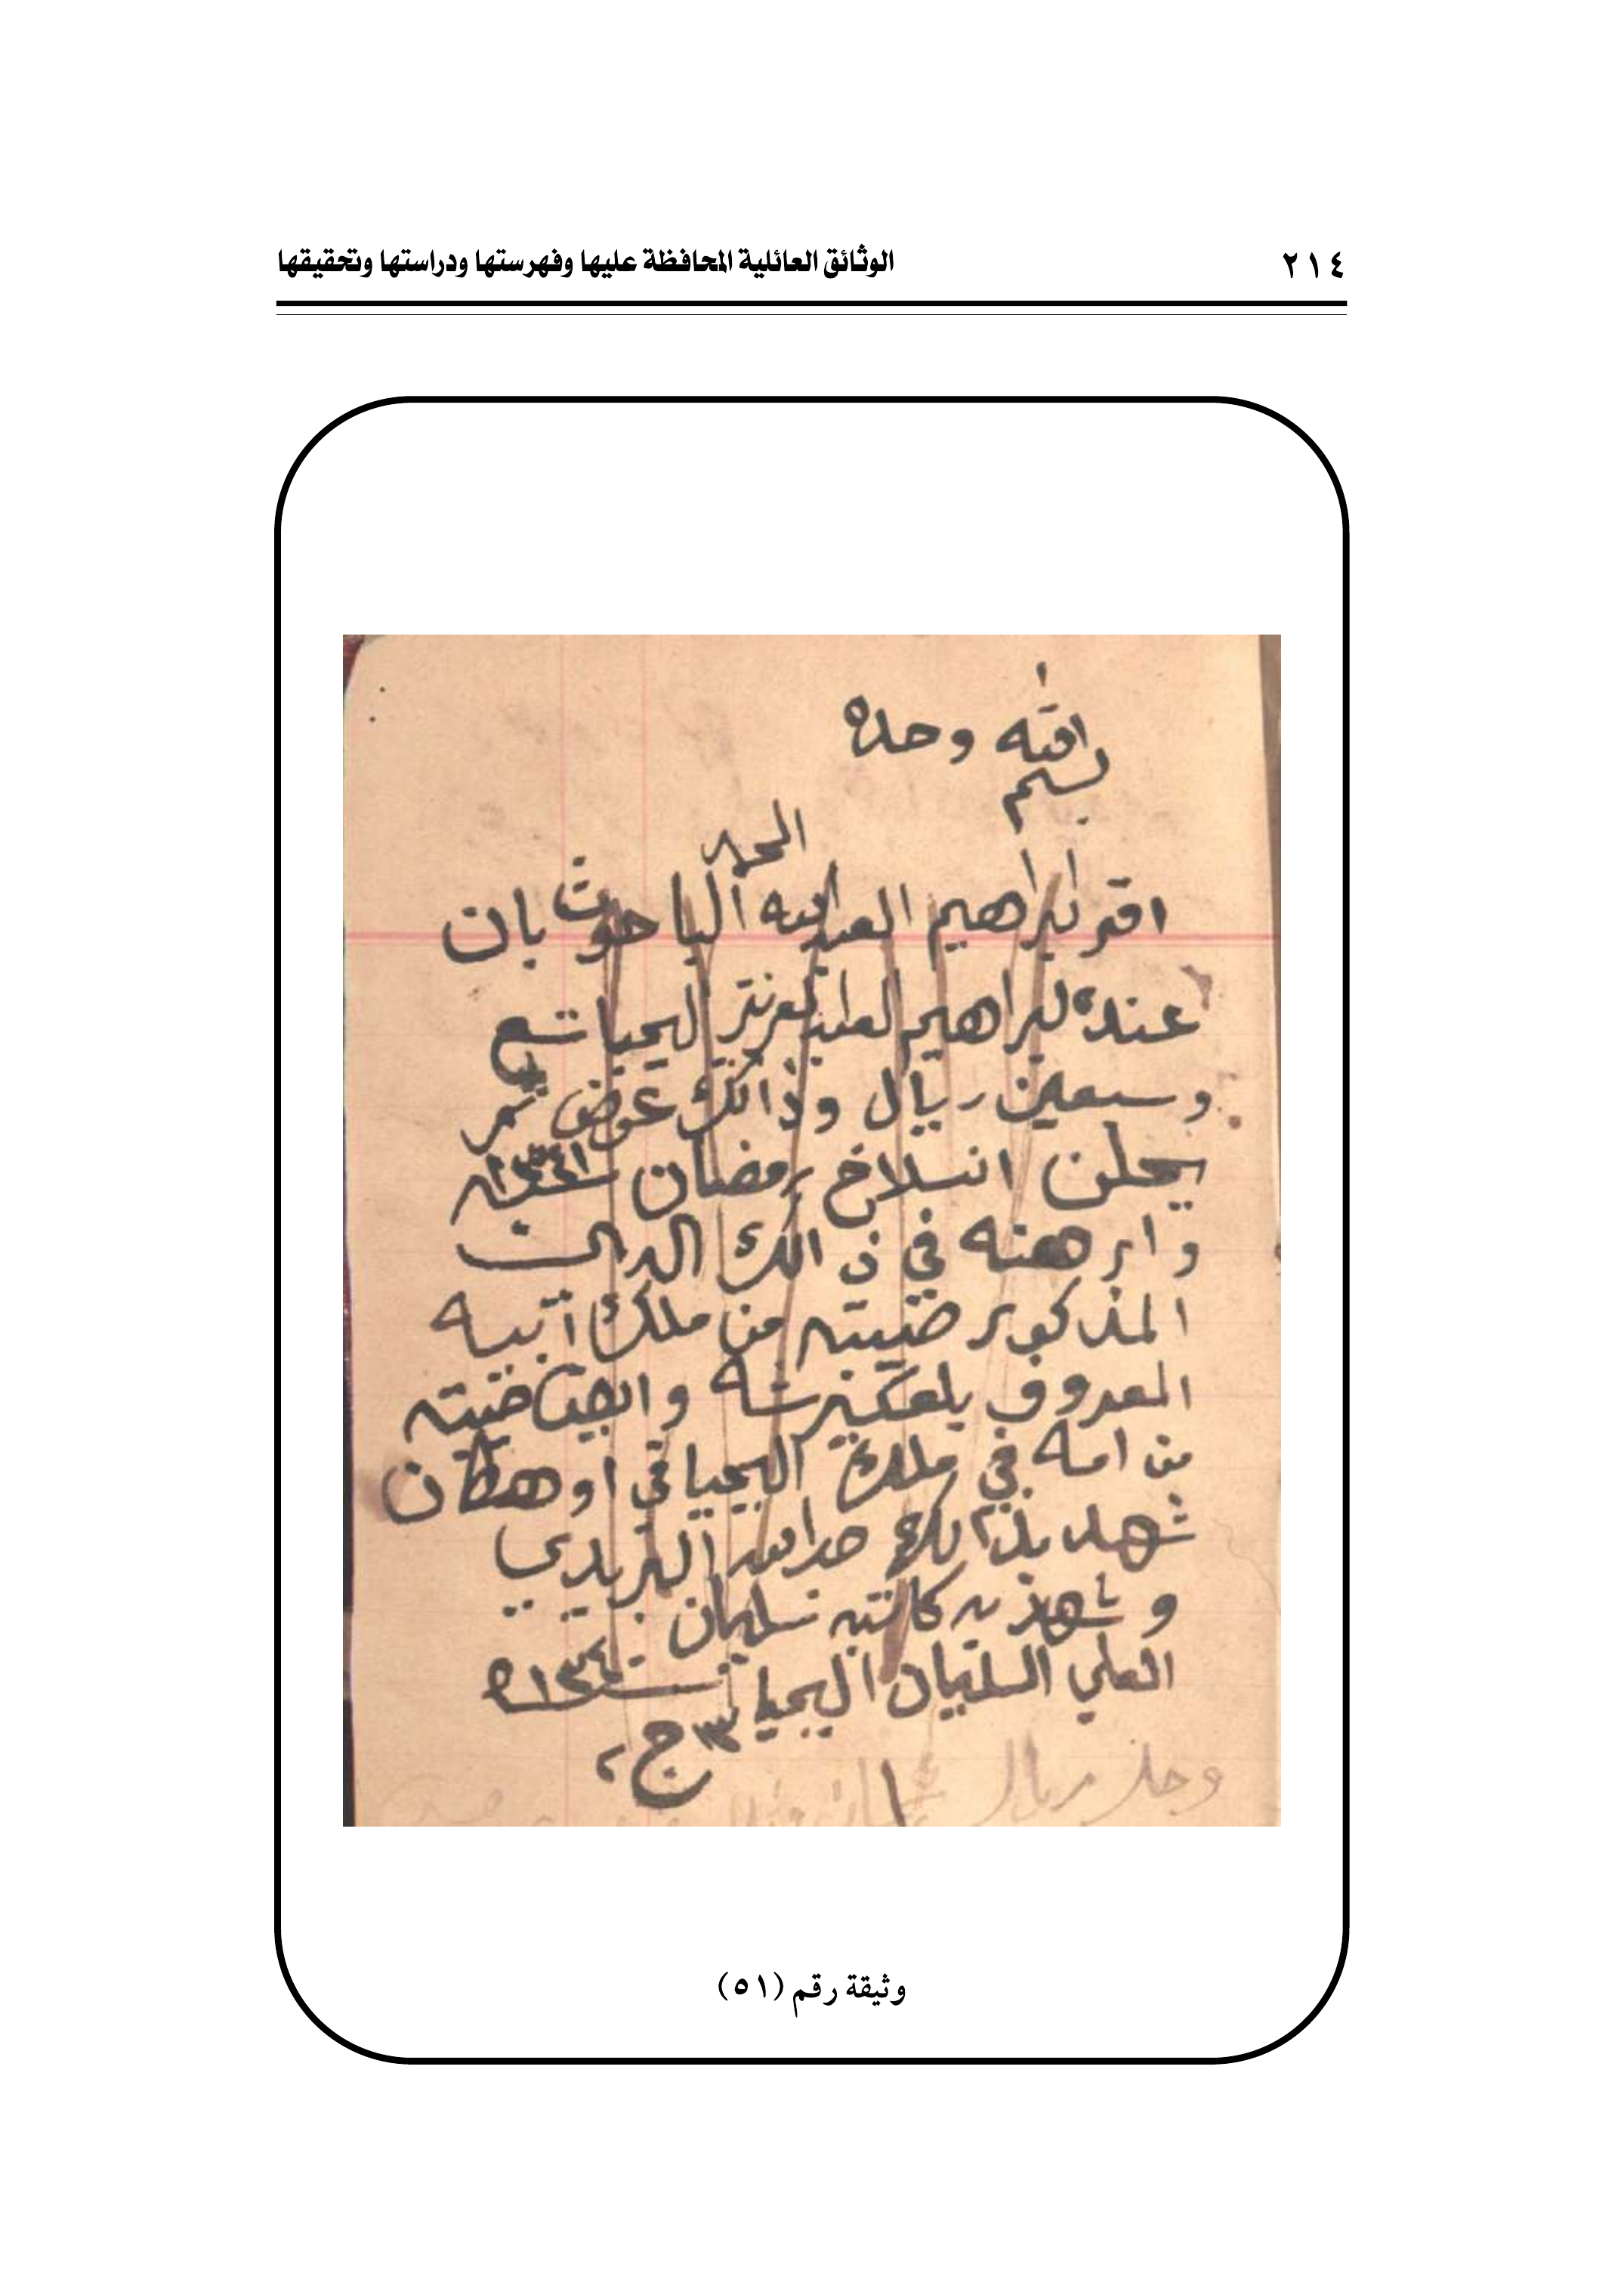 الوثائق العائلية المحافظة عليها وفهرستها ودراستها وتحقيقها ٢١٤
بسم الله وحده
الحمد
اقر ابراهيم العبدالله الباحوث بان
عنده لبراهيم لعبدلعزيز ليحيا تسع
وسبعين ريال وذالك عوض تمر
يحلن انسلاخ رمضان سنة ١٣٤١
وارهنه في ذالك الدين
المذكور صيبته من ملك ابيه
المعروف بلعكيرشه وايضا صيبته
من امه في ملك اليحيا في اوهطان
شهد بذالك حمدالله البريدي
وشهد به كاتبه سليمان
العلي السليمان اليحيا سنة ١٣٤٠
٣ ج ٢
وحل ريال
وثيقة رقم (٥١)